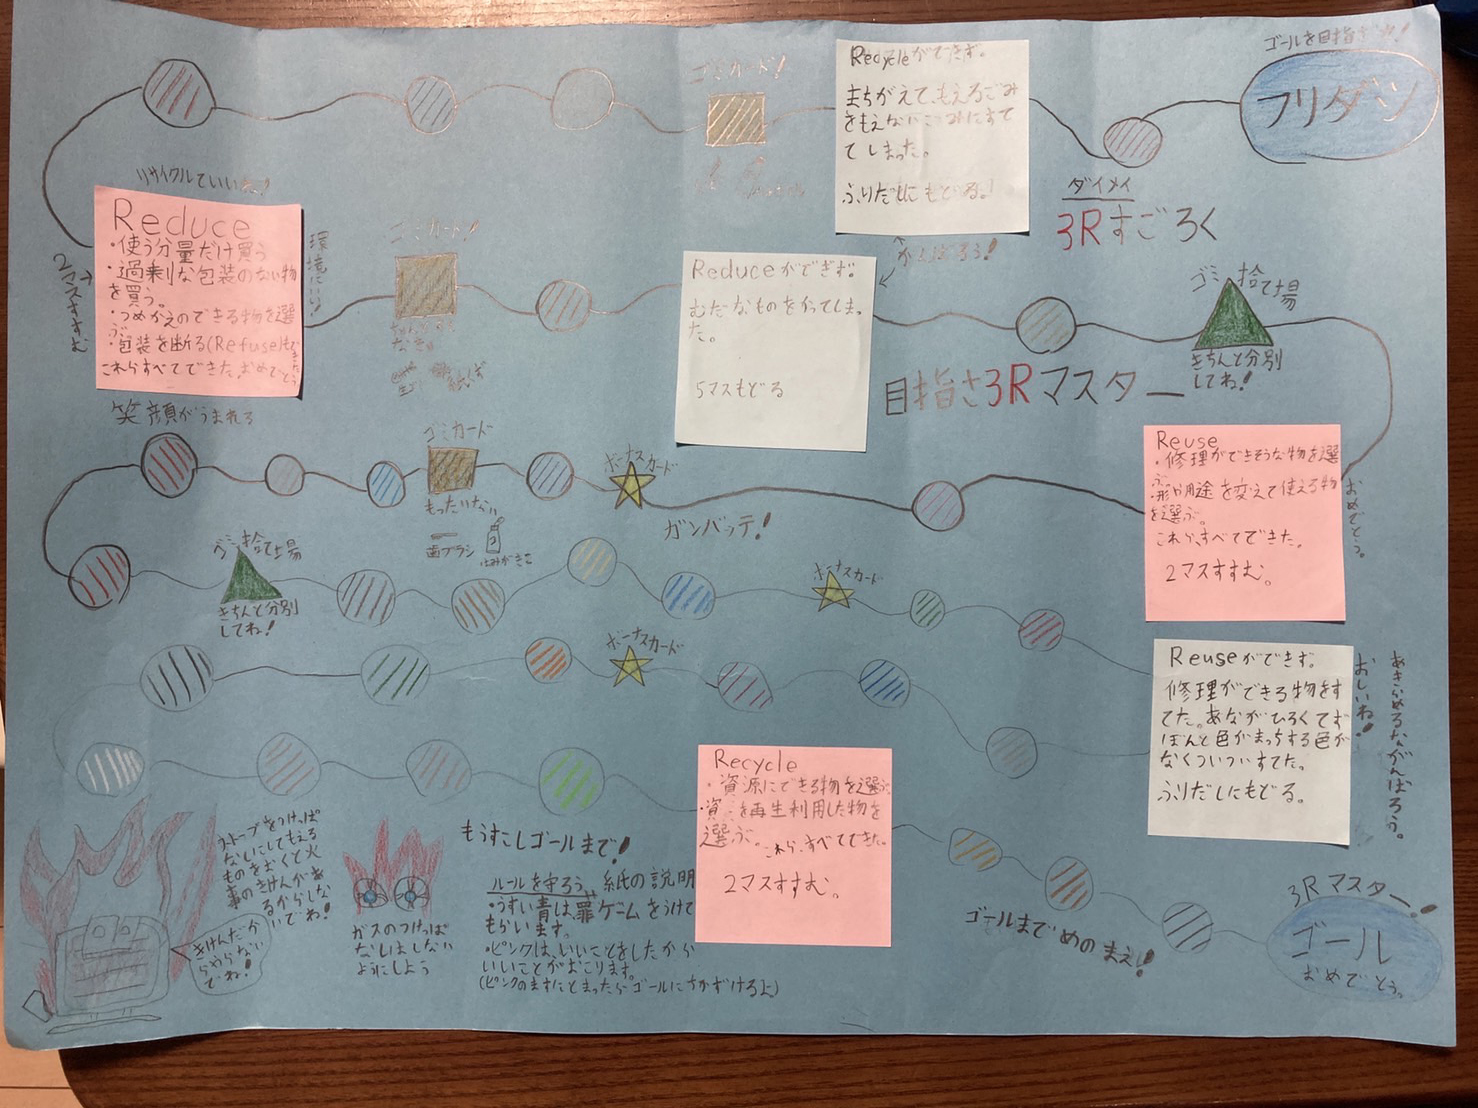 ゴールを目指せ!
フリダシ
ゴミカード!
Recycleができず。
まちがえて、もえるごみ
をもえないごみにすて
てしまった。
ふりだしにもどる。!
ダイメイ
3Rすごろく
リサイクルていいね!
Reduce
・使う分量だけ買う
・過剰な包装のない物
を買う。
・つめかえのできる物を選
ぶ
・包装を断る(Refuse)もできた
これらすべてできた。おめでとう
2マスすすむ
環境にいい!
ゴミカード!
生ゴミ
紙くず
Reduceができず。
むだなものをかってしまっ
た。
5マスもどる
がんばろう!
ゴミ捨て場
きちんと分別
してね!
目指さ3Rマスター
笑顔がうまれる
ゴミカード
もったいない
歯ブラシ
はみがきこ
ボーナスカード
ガンバッテ!
Reuse
・修理ができそうな物を選
ぶ
・形や用途を変えて使える物
を選ぶ。
これら、すべてできた。
2マスすすむ。
おめでとう。
ゴミ捨て場
きちんと分別
してね!
ボーナスカード
ボーナスカード
Reuseができず。
修理ができる物をす
てた。あながひろくてず
ぼんと色がまっちする色が
なくついついすてた。
ふりだしにもどる。
おしいね!
あきらめるながんばろう。
Recycle
・資源にできる物を選ぶ
・資源を再生利用した物を
選ぶ。これら、すべてできた。
2マスすすむ。
ストーブをつけっぱ
なしにしてもえる
ものをおくと火
事のきけんがあ
るからしな
いでね!
きけんだか
らやらない
でね!
ガスのつけっぱ
なしはしない
ようにしよう
もうすこしゴールまで!
ルールを守ろう 紙の説明
・うすい青は、罪ゲームをうけて
もらいます。
・ピンクは、いいことをしたから
いいことがおこります。
(ピンクのますにとまったらゴールにちかずけるよ)
ゴールまでめのまえ!
3Rマスター!
ゴール
おめでとう。